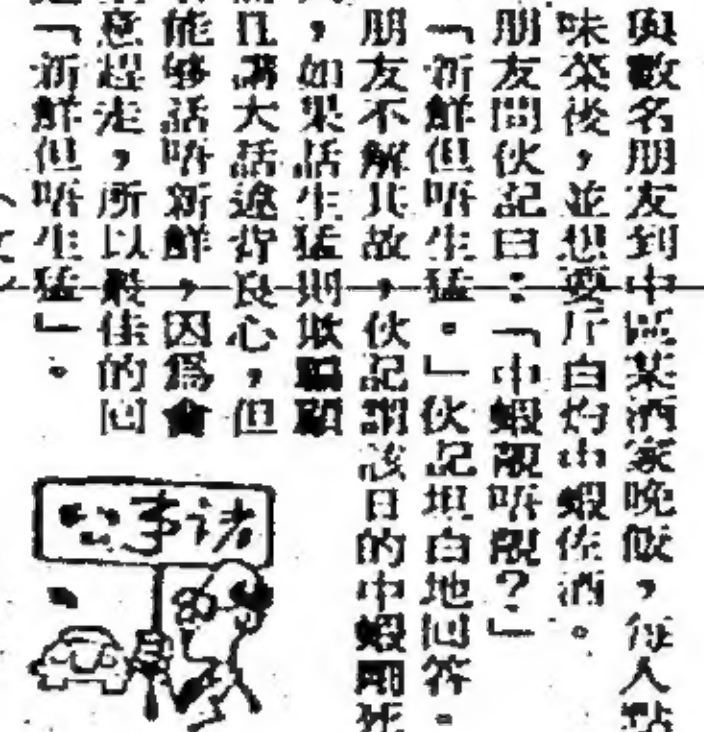 與數名朋友到中區某酒家晚飯，每人點
味菜後，並想要斤白灼中蝦佐酒。
朋友問伙記曰：「中蝦靚唔靚？」
「新鮮但唔生猛。」伙記坦白地回答。
朋友不解其故，伙記謂該日的中蝦剛死
，如果話生猛則欺騙顧
且講大話違背良心，但
能够話唔新鮮，因為會
意趕走，所以最佳的回
「新鮮但唔生猛」。
公事诸